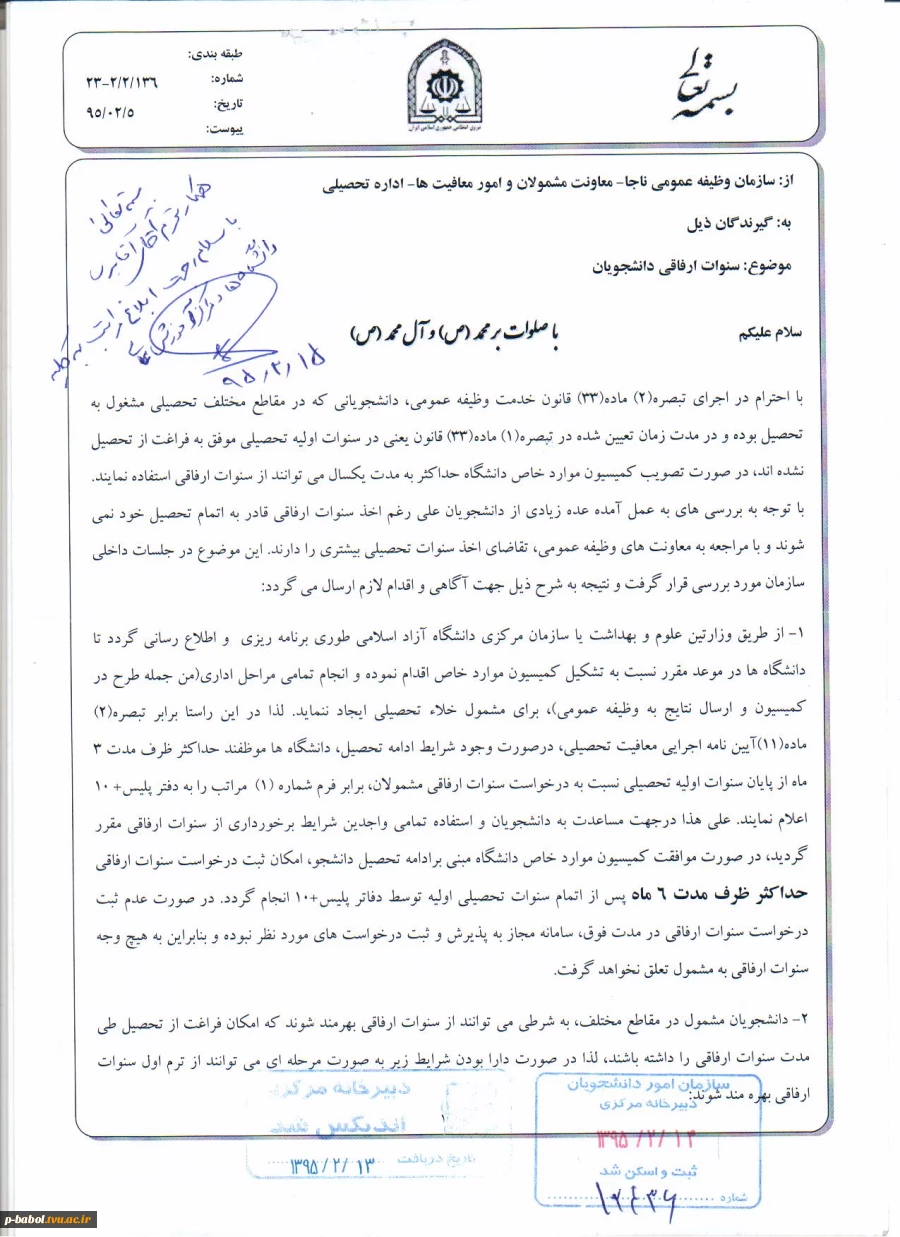 بسمه تعالی
نیروی انتظامی جمهوری اسلامی ایران
طبقه بندی:
شماره: ۲۳-۲/۲/۱۳۶
تاریخ: ۹۵/۰۲/۵
پیوست:
از: سازمان وظیفه عمومی ناجا- معاونت مشمولان و امور معافیت ها- اداره تحصیلی
به: گیرندگان ذیل
موضوع: سنوات ارفاقی دانشجویان
بسمه تعالی
همکار محترم آقای
با سلام جهت ابلاغ مراتب به کلیه
دانشگاه ها و مراکز آموزش عالی
۹۵/۲/۱۵
سلام علیکم
با صلوات بر محمد (ص) و آل محمد (ص)
با احترام در اجرای تبصره(۲) ماده(۳۳) قانون خدمت وظیفه عمومی، دانشجویانی که در مقاطع مختلف تحصیلی مشغول به
تحصیل بوده و در مدت زمان تعیین شده در تبصره(۱) ماده(۳۳) قانون یعنی در سنوات اولیه تحصیلی موفق به فراغت از تحصیل
نشده اند، در صورت تصویب کمیسیون موارد خاص دانشگاه حداکثر به مدت یکسال می توانند از سنوات ارفاقی استفاده نمایند.
با توجه به بررسی های به عمل آمده عده زیادی از دانشجویان علی رغم اخذ سنوات ارفاقی قادر به اتمام تحصیل خود نمی
شوند و با مراجعه به معاونت های وظیفه عمومی، تقاضای اخذ سنوات تحصیلی بیشتری را دارند. این موضوع در جلسات داخلی
سازمان مورد بررسی قرار گرفت و نتیجه به شرح ذیل جهت آگاهی و اقدام لازم ارسال می گردد:
۱- از طریق وزارتین علوم و بهداشت یا سازمان مرکزی دانشگاه آزاد اسلامی طوری برنامه ریزی و اطلاع رسانی گردد تا
دانشگاه ها در موعد مقرر نسبت به تشکیل کمیسیون موارد خاص اقدام نموده و انجام تمامی مراحل اداری(من جمله طرح در
کمیسیون و ارسال نتایج به وظیفه عمومی)، برای مشمول خلاء تحصیلی ایجاد ننماید. لذا در این راستا برابر تبصره(۲)
ماده(۱۱)آیین نامه اجرایی معافیت تحصیلی، درصورت وجود شرایط ادامه تحصیل، دانشگاه ها موظفند حداکثر ظرف مدت ۳
ماه از پایان سنوات اولیه تحصیلی نسبت به درخواست سنوات ارفاقی مشمولان، برابر فرم شماره (۱) مراتب را به دفتر پلیس+۱۰
اعلام نمایند. علی هذا درجهت مساعدت به دانشجویان و استفاده تمامی واجدین شرایط برخورداری از سنوات ارفاقی مقرر
گردید، در صورت موافقت کمیسیون موارد خاص دانشگاه مبنی برادامه تحصیل دانشجو، امکان ثبت درخواست سنوات ارفاقی
حداکثر ظرف مدت ۶ ماه پس از اتمام سنوات تحصیلی اولیه توسط دفاتر پلیس+۱۰ انجام گردد. در صورت عدم ثبت
درخواست سنوات ارفاقی در مدت فوق، سامانه مجاز به پذیرش و ثبت درخواست های مورد نظر نبوده و بنابراین به هیچ وجه
سنوات ارفاقی به مشمول تعلق نخواهد گرفت.
۲- دانشجویان مشمول در مقاطع مختلف، به شرطی می توانند از سنوات ارفاقی بهرمند شوند که امکان فراغت از تحصیل طی
مدت سنوات ارفاقی را داشته باشند، لذا در صورت دارا بودن شرایط زیر به صورت مرحله ای می توانند از ترم اول سنوات
ارفاقی بهره مند شوند:
۱
سازمان امور دانشجویان
دبیرخانه مرکزی
۱۳۹۵/۲/۱۴
ثبت و اسکن شد
شماره ۱۲۴۳۶
دبیرخانه مرکزی
اندیکس شد
تاریخ دریافت ۱۳۹۵/۲/۱۳
p-babol.tvu.ac.ir